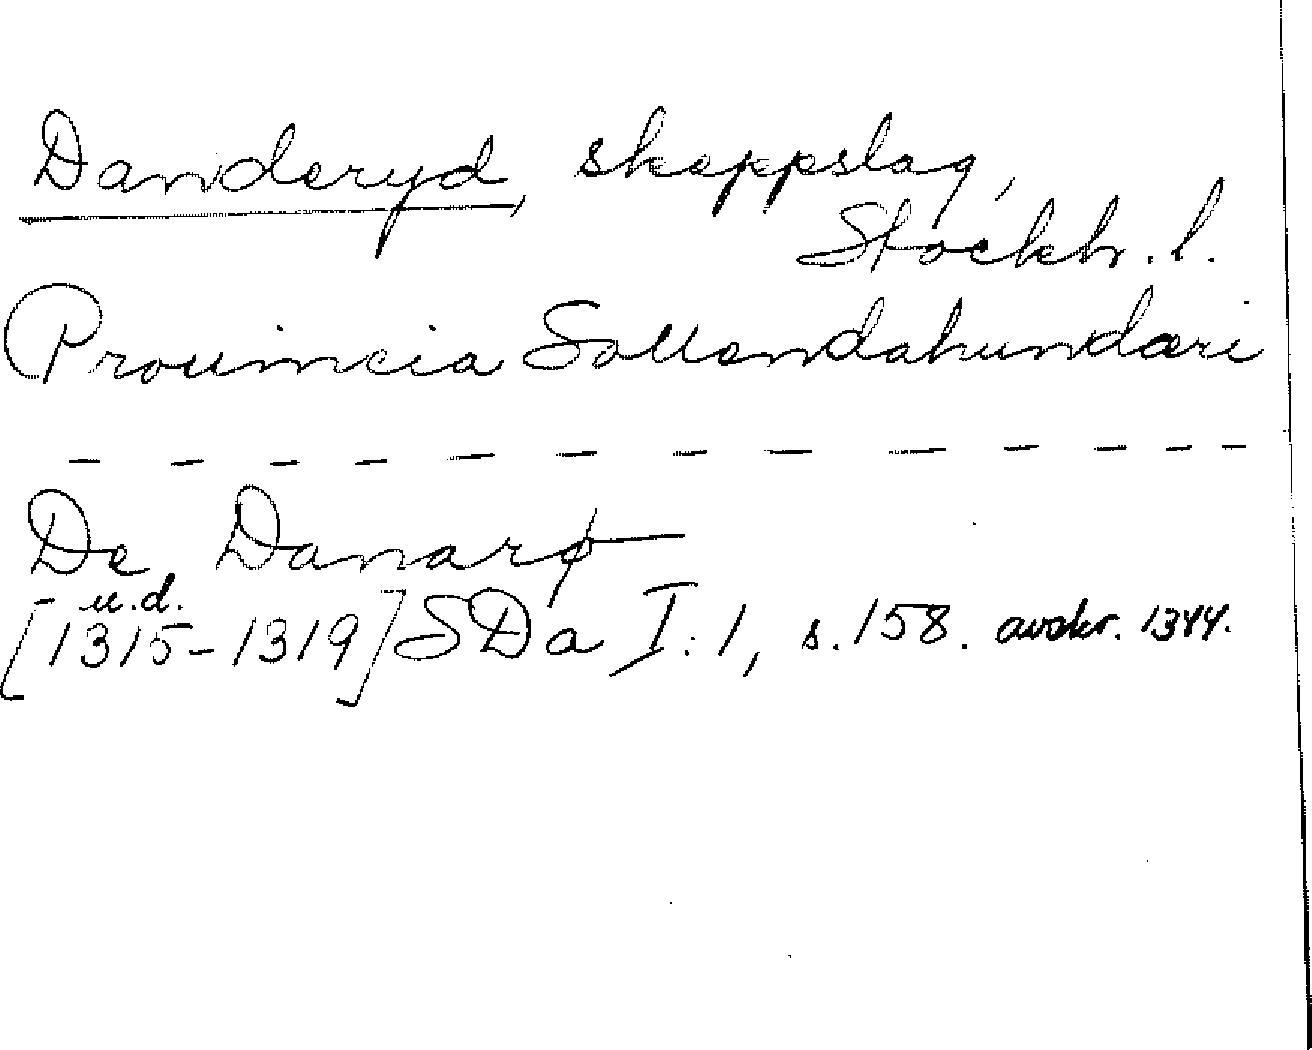 Danderyd, skeppslag,
Stockh. l.
Prouincia Sollendahundæri
— — — — — — — — — — — —
De Danarø
u.d.
[1315-1319] SDa I:1, s. 158. avskr. 1344.